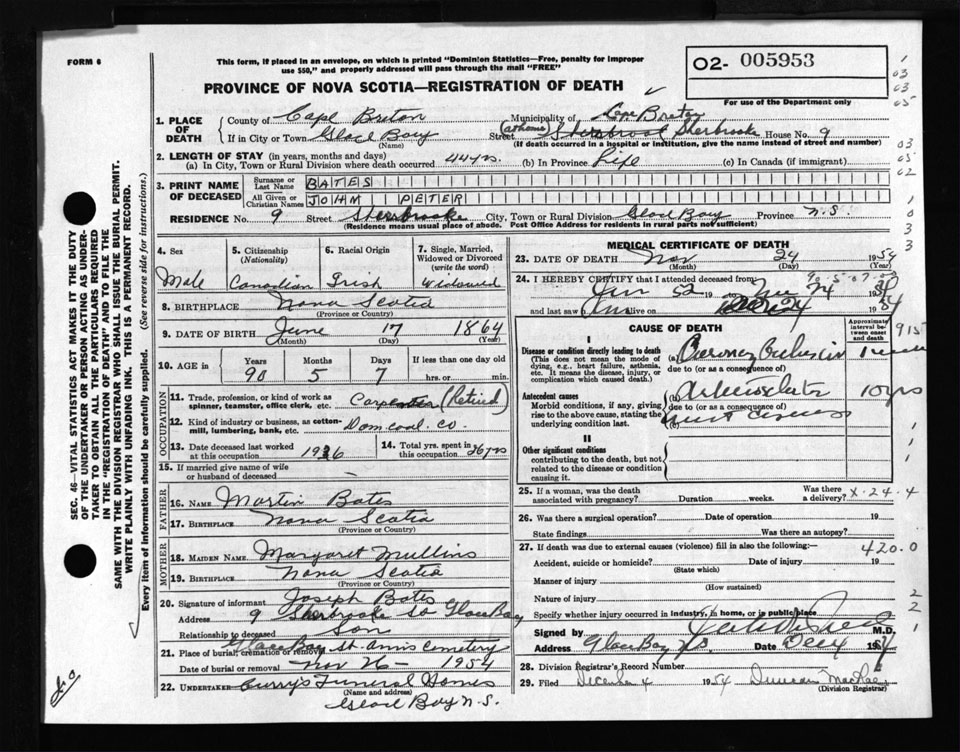 FORM 6
This form, if placed in an envelope, on which is printed "Dominion Statistics—Free, penalty for improper
use $50," and properly addressed will pass through the mail "FREE"
PROVINCE OF NOVA SCOTIA—REGISTRATION OF DEATH
O2- 005953
For use of the Department only
SEC. 46—VITAL STATISTICS ACT MAKES IT THE DUTY
OF THE UNDERTAKER OR PERSON ACTING AS UNDER-
TAKER TO OBTAIN ALL THE PARTICULARS REQUIRED
IN THE "REGISTRATION OF DEATH" AND TO FILE THE
SAME WITH THE DIVISION REGISTRAR WHO SHALL ISSUE THE BURIAL PERMIT.
WRITE PLAINLY WITH UNFADING INK. THIS IS A PERMANENT RECORD.
Every item of information should be carefully supplied. (See reverse side for instructions.)
1. PLACE OF DEATH
County of Cape Breton Municipality of Cape Breton
If in City or Town Glace Bay (Name) Street (at home) Sherbrooke House No. 9
(If death occurred in a hospital or institution, give the name instead of street and number)
2. LENGTH OF STAY (in years, months and days)
(a) In City, Town or Rural Division where death occurred 44 yrs. (b) In Province Life (c) In Canada (if immigrant)
3. PRINT NAME OF DECEASED
Surname or Last Name BATES
All Given or Christian Names JOHM PETER
RESIDENCE No. 9 Street Sherbrooke City, Town or Rural Division Glace Bay Province N.S.
(Residence means usual place of abode. Post Office Address for residents in rural parts not sufficient)
4. Sex Male
5. Citizenship (Nationality) Canadian
6. Racial Origin Irish
7. Single, Married, Widowed or Divorced (write the word) Widowed
8. BIRTHPLACE Nova Scotia
(Province or Country)
9. DATE OF BIRTH June 17 1864
(Month) (Day) (Year)
10. AGE in Years 90 Months 5 Days 7 If less than one day old hrs. or min.
OCCUPATION
11. Trade, profession, or kind of work as spinner, teamster, office clerk, etc. Carpenter (Retired)
12. Kind of industry or business, as cotton-mill, lumbering, bank, etc. Dom. coal. co.
13. Date deceased last worked at this occupation 1936
14. Total yrs. spent in this occupation 36 yrs
15. If married give name of wife or husband of deceased —
FATHER
16. NAME Martin Bates
17. BIRTHPLACE Nova Scotia
(Province or Country)
MOTHER
18. MAIDEN NAME Margaret Mullins
19. BIRTHPLACE Nova Scotia
(Province or Country)
20. Signature of informant Joseph Bates
Address 9 Sherbrooke St Glace Bay
Relationship to deceased Son
21. Place of burial, cremation or removal Glace Bay St. Anns Cemetery
Date of burial or removal Nov 26— 1954
22. UNDERTAKER Curry's Funeral Homes
(Name and address)
Glace Bay N.S.
MEDICAL CERTIFICATE OF DEATH
23. DATE OF DEATH Nov 24 1954
(Month) (Day) (Year)
24. I HEREBY CERTIFY that I attended deceased from
and last saw alive on
CAUSE OF DEATH
Approximate interval between onset and death
I
Disease or condition directly leading to death
(This does not mean the mode of dying, e.g., heart failure, asthenia, etc. It means the disease, injury, or complication which caused death.)
(a)
due to (or as a consequence of)
Antecedent causes
Morbid conditions, if any, giving rise to the above cause, stating the underlying condition last.
(b) 10 yrs
due to (or as a consequence of)
II
Other significant conditions
contributing to the death, but not related to the disease or condition causing it.
25. If a woman, was the death associated with pregnancy? Duration weeks. Was there a delivery?
26. Was there a surgical operation? Date of operation 19
State findings Was there an autopsy?
27. If death was due to external causes (violence) fill in also the following:—
420.0
Accident, suicide or homicide? Date of injury 19
(State which)
Manner of injury
(How sustained)
Nature of injury
Specify whether injury occurred in industry, in home, or in public place
Signed by M.D.
Address Glace Bay N.S. Date Dec 4 1954
28. Division Registrar's Record Number
29. Filed December 4 1954 Duncan MacRae
(Division Registrar)